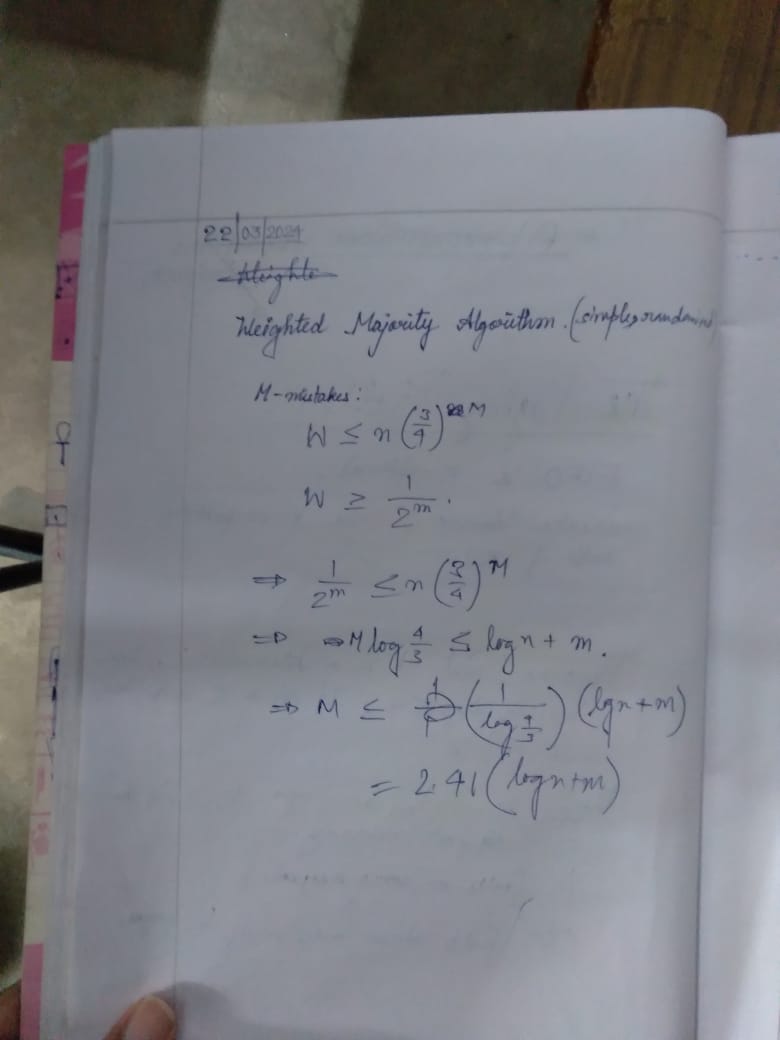 22/03/2024
Weighte
Weighted Majority Algorithm. (simple, randomized)
M-mistakes:
W ≤ n (3/4)^M
W ≥ 1/2^m.
⇒ 1/2^m ≤ n (3/4)^M
⇒ M log 4/3 ≤ log n + m.
⇒ M ≤ (1/log 4/3) (lgn + m)
= 2.41 (logn+m)